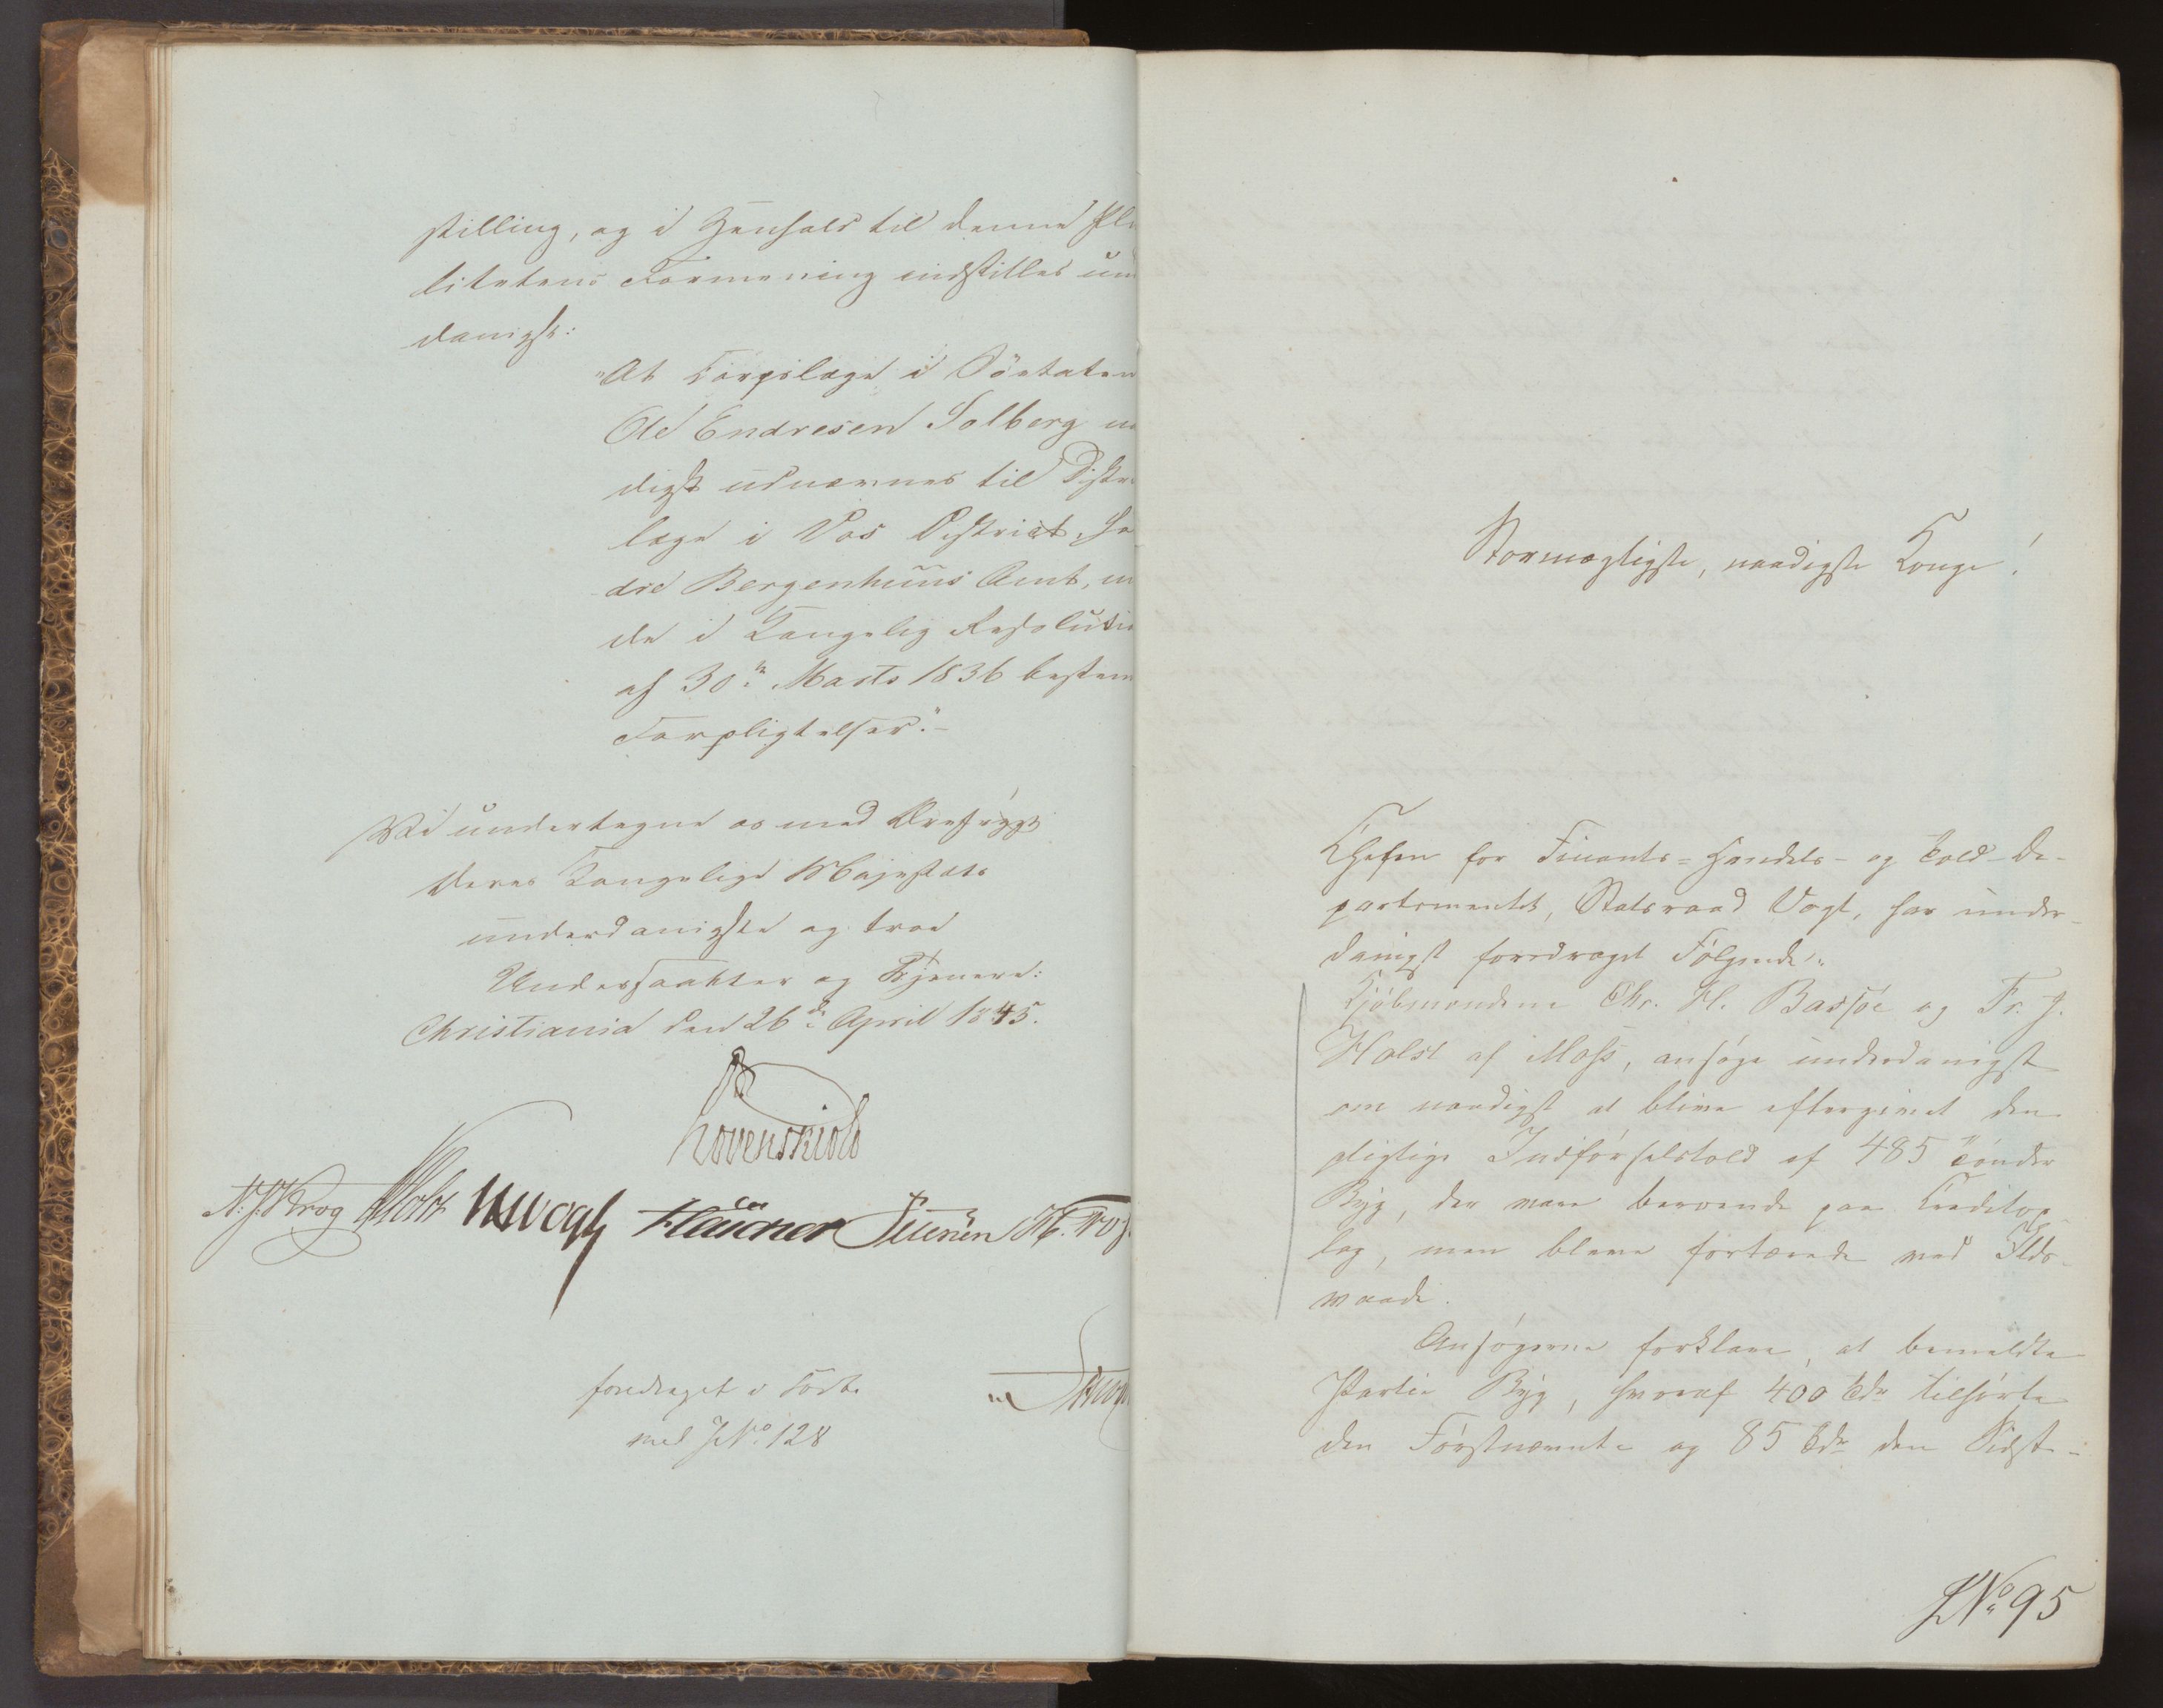 stilling, og i Henhold til denne Plu
litetens Formening indstilles un
danigst:
"At Corpslæge i Söetaten
Ole Endresen Solberg na
digst udnævnes til Distri
læge i Vos District, Sø
dre Bergenhuus Amt, m
de i Kongelig Resolutio
af 30te Marts 1836 bestem
Forpligtelser."-
Vi undertegne os med Ærefrygt
Deres Kongelige Majestæts
underdanigste og troe
Undersaatter og Tjenere:
Christiania den 26de April 1845.
Løvenskiold
N. J. Krog Holst Vogt Fleischer Petersen
foredraget i
med JNo. 128
Stormægtigste, naadigste Konge!
Chefen for Finants- Handels- og Told-De-
partementet, Statsraad Vogt, har under-
danigst foredraget Følgende:
Kjøbmændene Chr. H. Bassøe og Fr. J.
Holst af Moss, ansøge underdanigst
om naadigst at blive eftergivet den
pligtige Indførselstold af 485 Tønder
Byg, der vare beroende paa Creditop-
lag, men bleve fortærede ved Ilds-
vaade.
Ansøgerne forklare, at bemeldte
Partie Byg, hvoraf 400 Tdr tilhørte
den Førstnævnte og 85 Tdr den Sidst-
JNo. 95